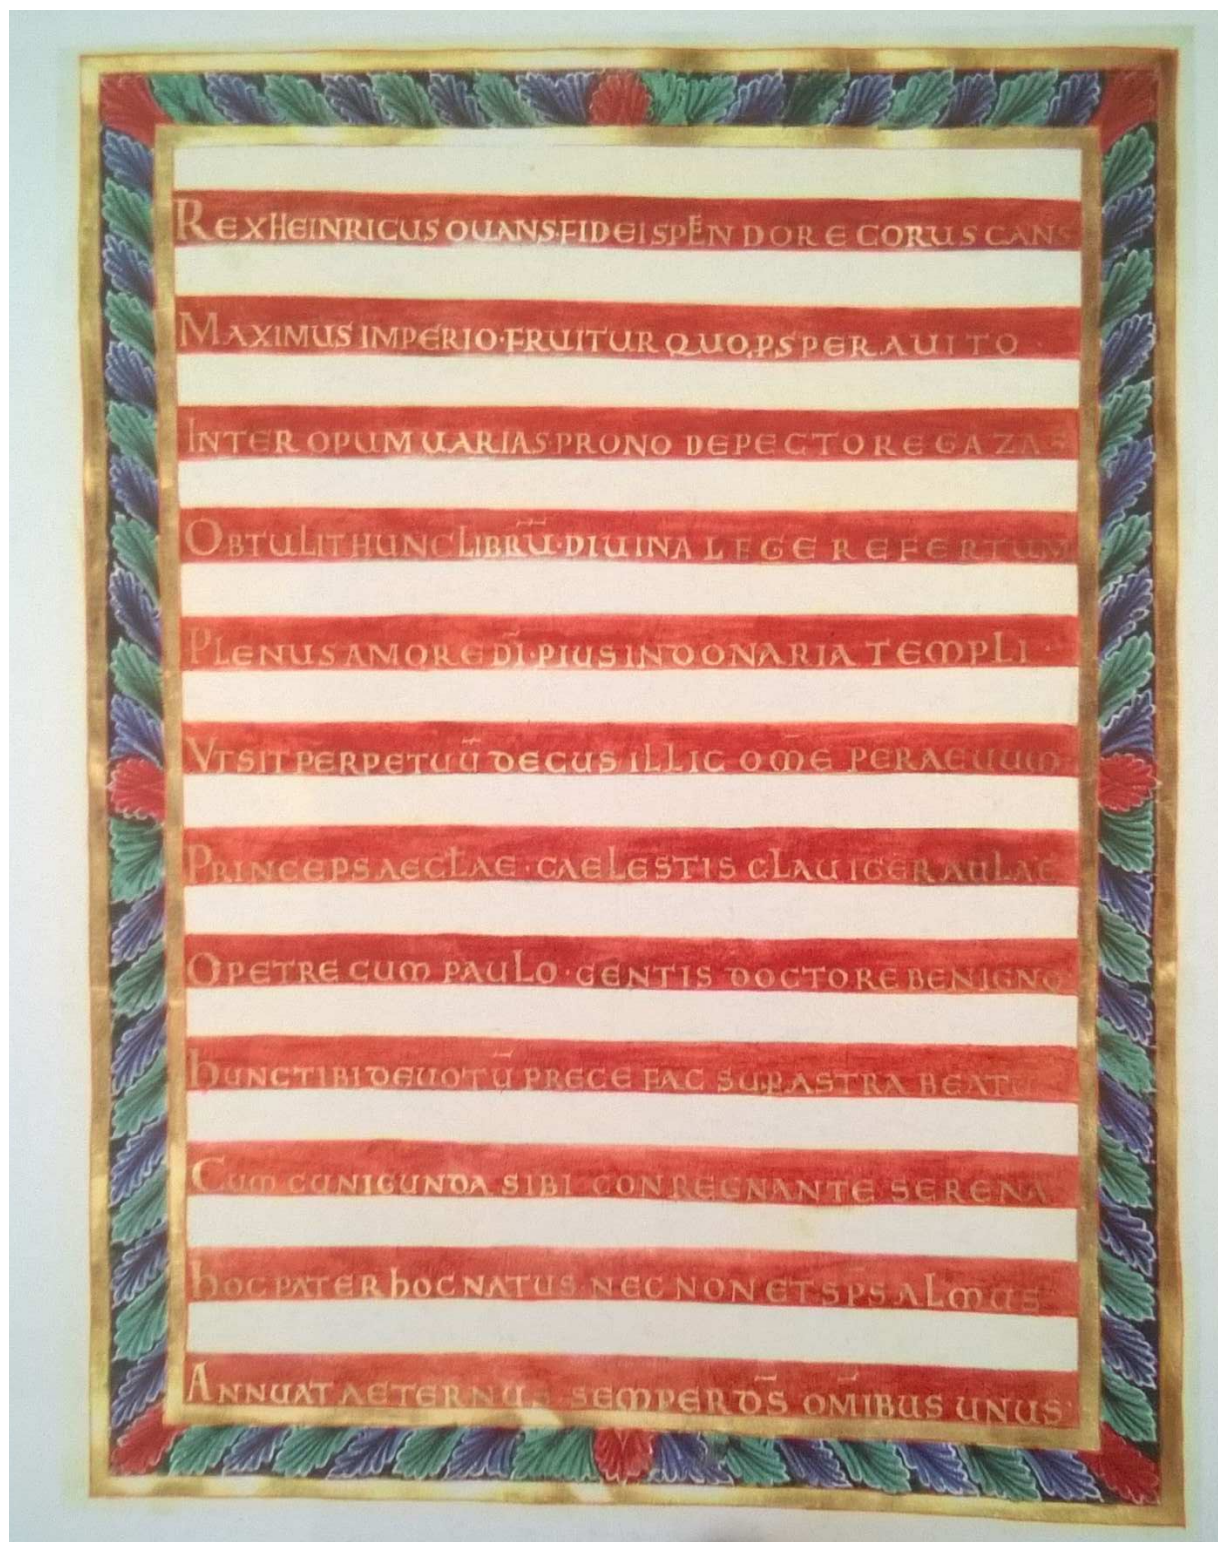 REXHEINRICUS OUANS·FIDEI SPLENDORE CORUSCANS
MAXIMUS IMPERIO·FRUITUR QUO PSPER AUITO·
INTER OPUM UARIAS·PRONO DE PECTORE GAZAS
OBTULIT HUNC LIBRŪ·DIUINA LEGE REFERTUM
PLENUS AMORE DĪ·PIUS IN DONARIA TEMPLI·
VT SIT PERPETUŪ DECUS ILLIC OM̄E PER AEUUM·
PRINCEPS AECŁAE·CAELESTIS CLAUIGER AULAE
O PETRE CUM PAULO·GENTIS DOCTORE BENIGNO
hUNC TIBI DEUOTŪ PRECE FAC SUPASTRA BEATU
CUM CUNIGUNDA SIBI CONREGNANTE SERENA
hOC PATER hOC NATUS·NEC NON ET SP̄S ALMUS
ANNUAT AETERNUS SEMPER D̄S OM̄IBUS UNUS·